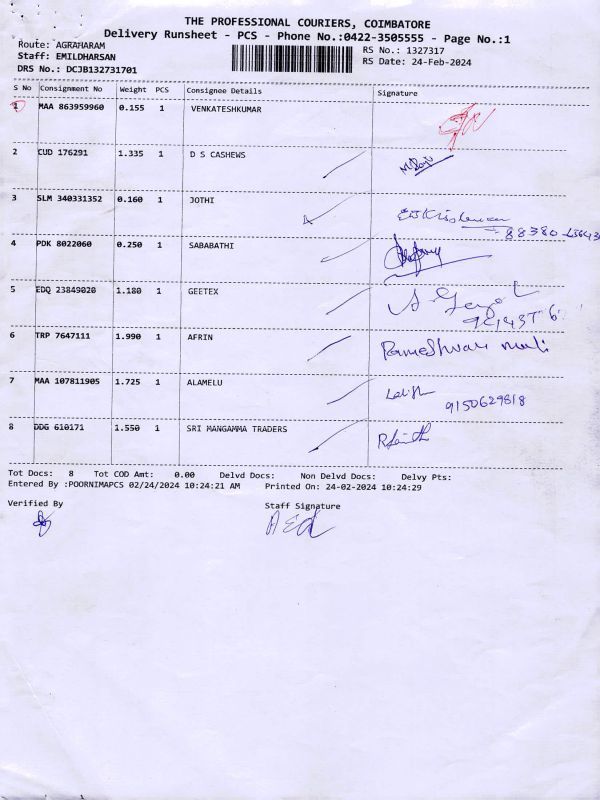 THE PROFESSIONAL COURIERS, COIMBATORE
Delivery Runsheet - PCS - Phone No.:0422-3505555 - Page No.:1
Route: AGRAHARAM RS No.: 1327317
Staff: EMILDHARSAN RS Date: 24-Feb-2024
DRS No.: DCJB132731701
S No Consignment No Weight PCS Consignee Details Signature
1 MAA 863959960 0.155 1 VENKATESHKUMAR
2 CUD 176291 1.335 1 D S CASHEWS
3 SLM 340331352 0.160 1 JOTHI
4 PDK 8022060 0.250 1 SABABATHI
5 EDQ 23849020 1.180 1 GEETEX
6 TRP 7647111 1.990 1 AFRIN Rameshwari
7 MAA 107811905 1.725 1 ALAMELU 9150629818
8 DDG 610171 1.550 1 SRI MANGAMMA TRADERS
Tot Docs: 8 Tot COD Amt: 0.00 Delvd Docs: Non Delvd Docs: Delvy Pts:
Entered By :POORNIMAPCS 02/24/2024 10:24:21 AM Printed On: 24-02-2024 10:24:29
Verified By Staff Signature